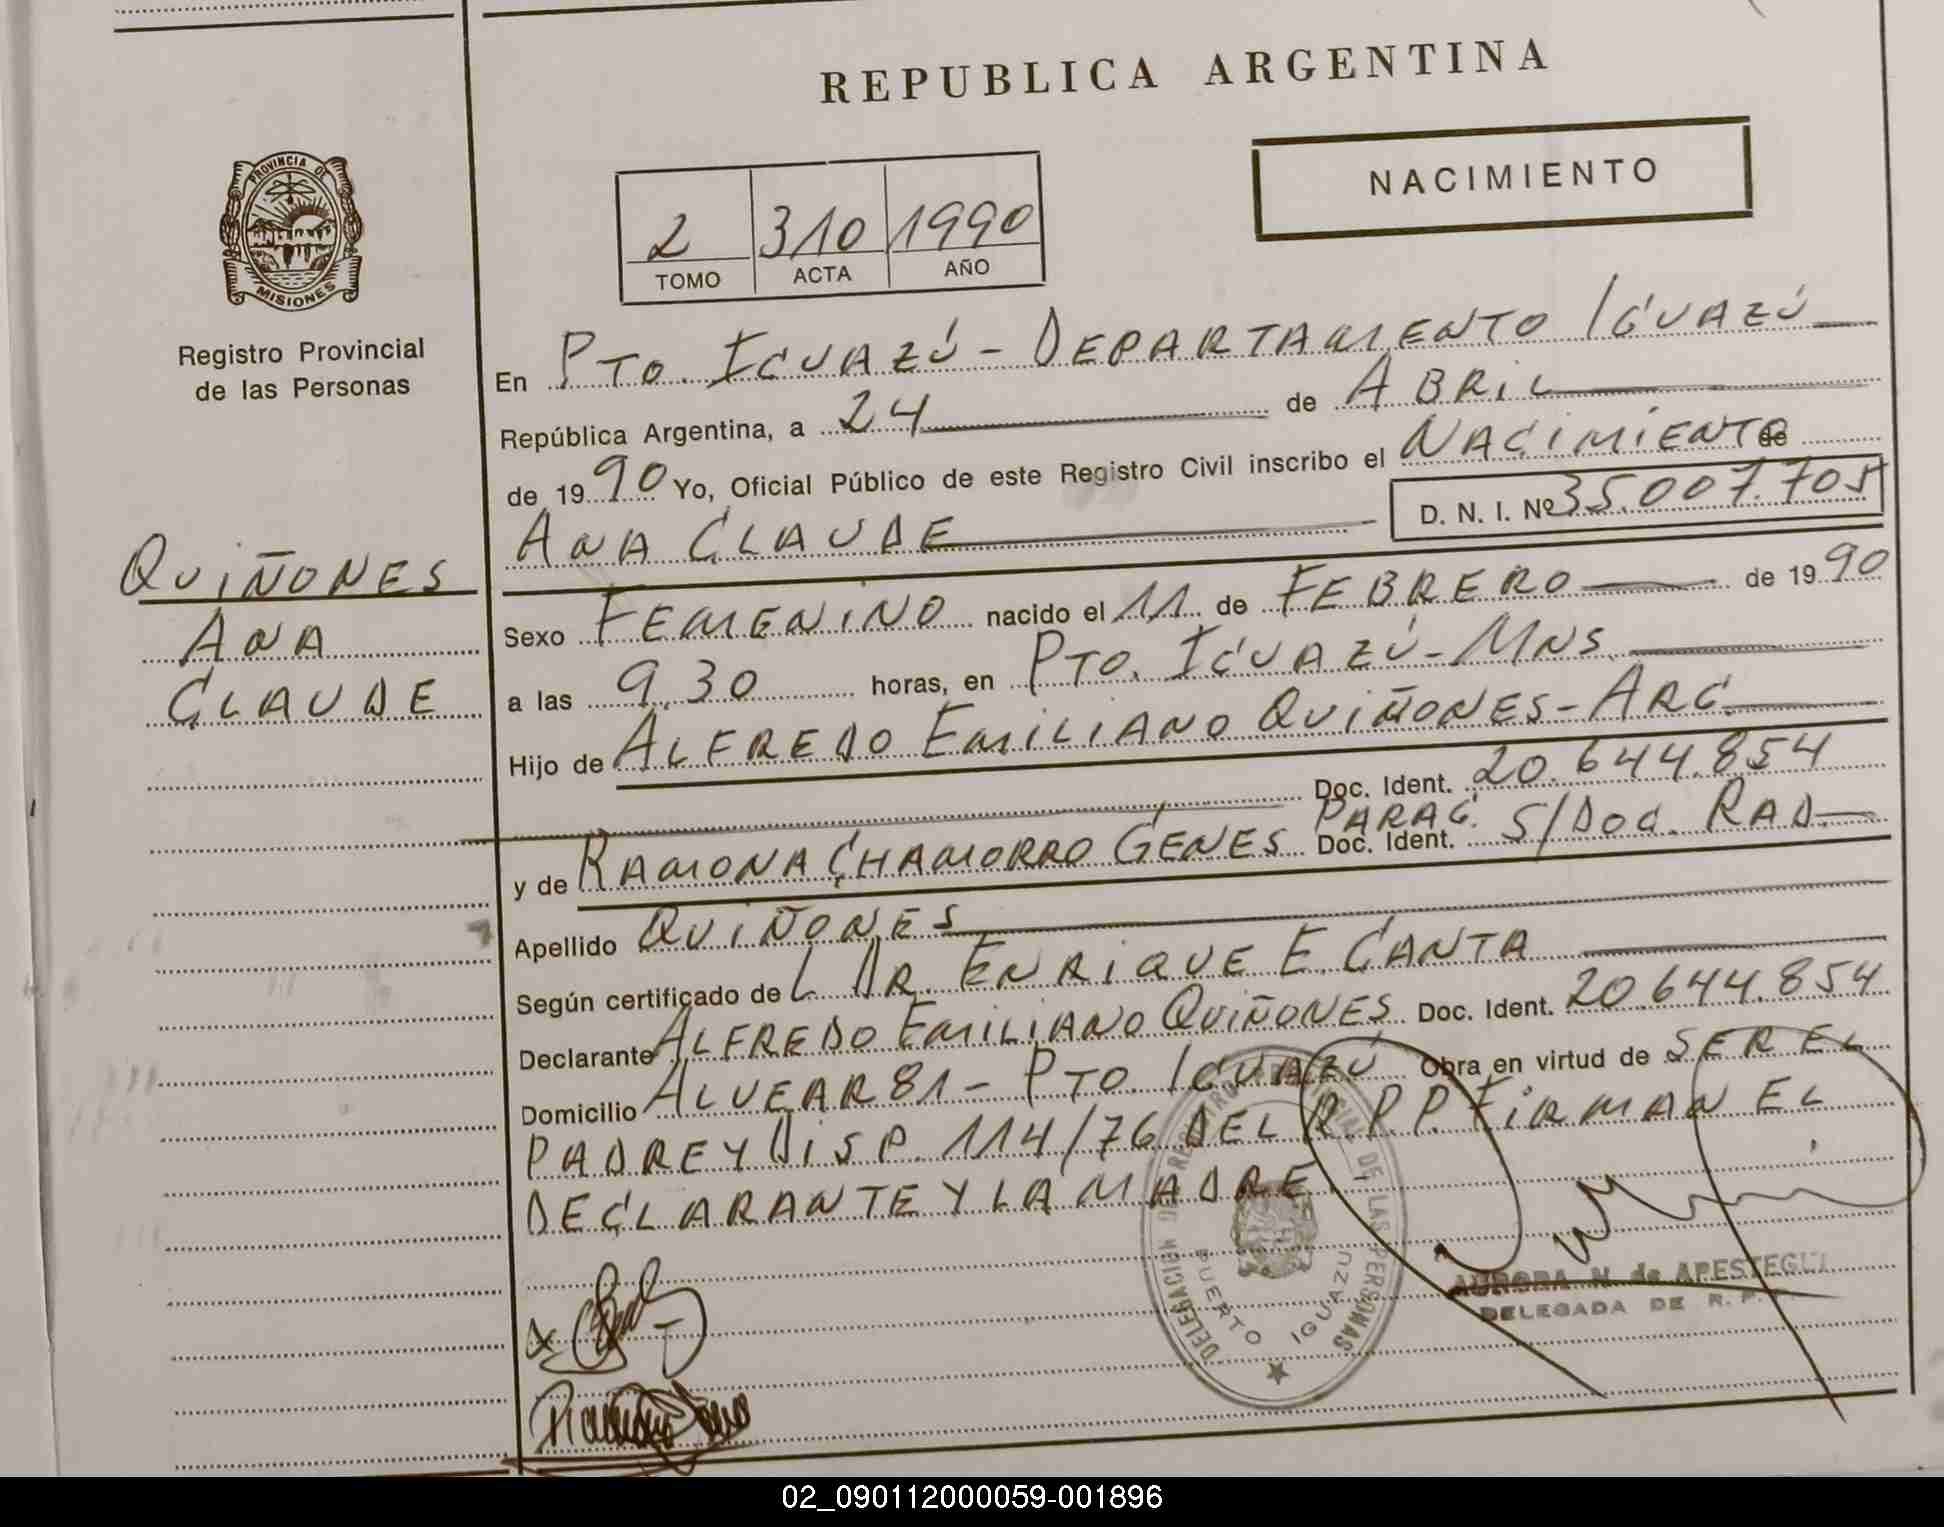 REPUBLICA ARGENTINA
NACIMIENTO
PROVINCIA DE
MISIONES
Registro Provincial
de las Personas
2 310 1990
TOMO ACTA AÑO
En PTO. IGUAZÚ - DEPARTAMENTO IGUAZÚ
República Argentina, a 24 de ABRIL
de 1990 Yo, Oficial Público de este Registro Civil inscribo el NACIMIENTO de
ANA CLAUDE D. N. I. Nº 35.007.705
QUIÑONES
ANA
CLAUDE
Sexo FEMENINO nacido el 11 de FEBRERO de 1990
a las 9,30 horas, en PTO. IGUAZÚ - MNS.
Hijo de ALFREDO EMILIANO QUIÑONES - ARG.
Doc. Ident. 20.644.854
PARAG.
y de RAMONA CHAMORRO GENES Doc. Ident. S/DOC. RAD.
Apellido QUIÑONES
Según certificado de DR. ENRIQUE E. CANTA
Declarante ALFREDO EMILIANO QUIÑONES Doc. Ident. 20.644.854
Domicilio ALVEAR 81 - PTO. IGUAZÚ Obra en virtud de SER EL
PADRE Y DISP. 114/76 DEL R.P.P. FIRMAN EL
DECLARANTE Y LA MADRE.
DELEGACION DE REGISTRO PROVINCIAL DE LAS PERSONAS
PUERTO IGUAZU
AURORA N. de APESTEGUI
DELEGADA DE R. P.
02_090112000059-001896